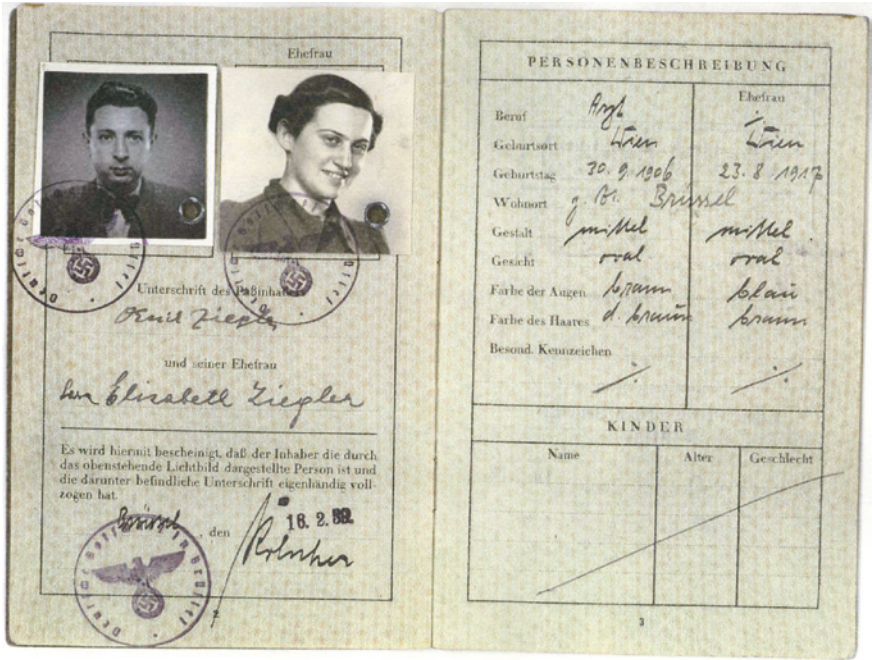 Ehefrau
Unterschrift des Paßinhabers
Ziegler
und seiner Ehefrau
Elisabeth Ziegler
Es wird hiermit bescheinigt, daß der Inhaber die durch
das obenstehende Lichtbild dargestellte Person ist und
die darunter befindliche Unterschrift eigenhändig voll-
zogen hat
Brüssel, den 16. 2. 39.
Deutsche Botschaft in Brüssel
PERSONENBESCHREIBUNG
Ehefrau
Beruf Arzt ./.
Geburtsort Wien Wien
Geburtstag 30. 9. 1906 23. 8 1917
Wohnort Brüssel
Gestalt mittel mittel
Gesicht oval oval
Farbe der Augen braun blau
Farbe des Haares d. braun braun
Besond. Kennzeichen
./. ./.
KINDER
Name Alter Geschlecht
3